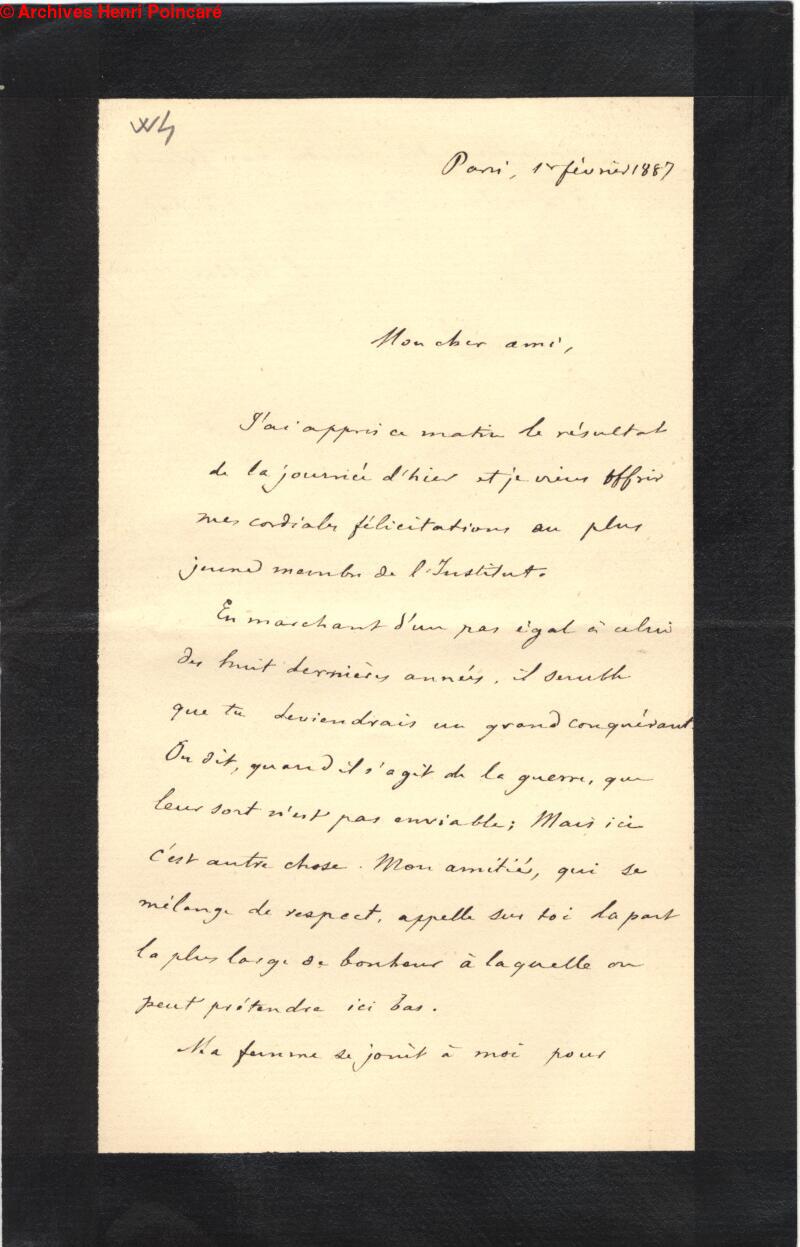 © Archives Henri Poincaré
Paris, 1er février 1887
Mon cher ami,
J'ai appris ce matin le résultat
de la journée d'hier et je viens offrir
mes cordiales félicitations au plus
jeune membre de l'Institut.
En marchant d'un pas égal à celui
des huit dernières années, il semble
que tu deviendrais un grand conquérant.
On dit, quand il s'agit de la guerre, que
leur sort n'est pas enviable; Mais ici
c'est autre chose. Mon amitié, qui se
mélange de respect, appelle sur toi la part
la plus large de bonheur à laquelle on
peut prétendre ici bas.
Ma femme se joint à moi pour